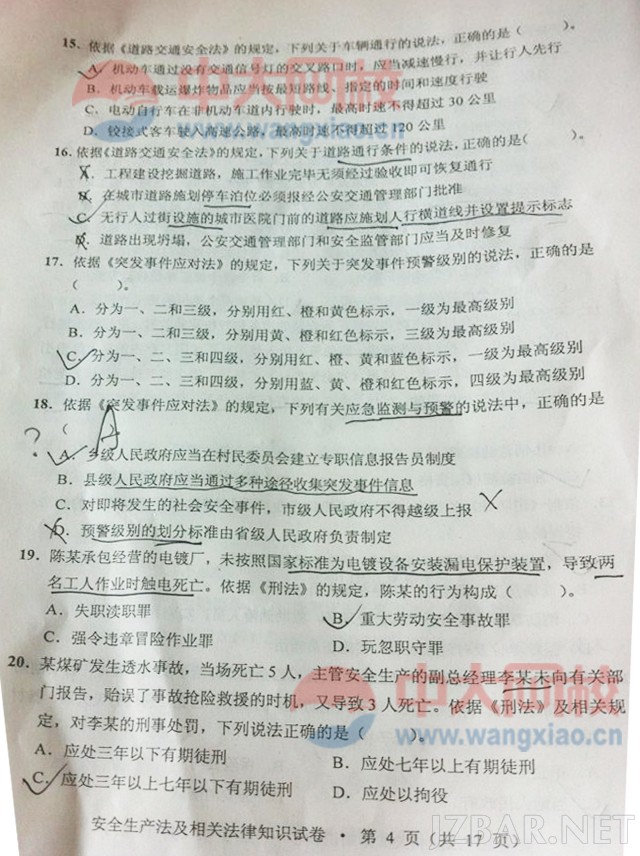 15. 依据《道路交通安全法》的规定，下列关于车辆通行的说法，正确的是（　　）。
A. 机动车通过没有交通信号灯的交叉路口时，应当减速慢行，并让行人先行
B. 机动车载运爆炸物品应当按最短路线、指定的时间和速度行驶
C. 电动自行车在非机动车道内行驶时，最高时速不得超过 30 公里
D. 铰接式客车驶入高速公路，最高时速不得超过 120 公里
16. 依据《道路交通安全法》的规定，下列关于道路通行条件的说法，正确的是（　　）。
A. 工程建设挖掘道路，施工作业完毕无须经过验收即可恢复通行
B. 在城市道路施划停车泊位必须报经公安交通管理部门批准
C. 无行人过街设施的城市医院门前的道路应施划人行横道线并设置提示标志
D. 道路出现坍塌，公安交通管理部门和安全监管部门应当及时修复
17. 依据《突发事件应对法》的规定，下列关于突发事件预警级别的说法，正确的是
（　　）。
A. 分为一、二和三级，分别用红、橙和黄色标示，一级为最高级别
B. 分为一、二和三级，分别用黄、橙和红色标示，三级为最高级别
C. 分为一、二、三和四级，分别用红、橙、黄和蓝色标示，一级为最高级别
D. 分为一、二、三和四级，分别用蓝、黄、橙和红色标示，四级为最高级别
18. 依据《突发事件应对法》的规定，下列有关应急监测与预警的说法中，正确的是
? （ A
A. 乡级人民政府应当在村民委员会建立专职信息报告员制度
B. 县级人民政府应当通过多种途径收集突发事件信息
C. 对即将发生的社会安全事件，市级人民政府不得越级上报 X
D. 预警级别的划分标准由省级人民政府负责制定
19. 陈某承包经营的电镀厂，未按照国家标准为电镀设备安装漏电保护装置，导致两
名工人作业时触电死亡。依据《刑法》的规定，陈某的行为构成（　　）。
A. 失职渎职罪　　B. 重大劳动安全事故罪
C. 强令违章冒险作业罪　　D. 玩忽职守罪
20. 某煤矿发生透水事故，当场死亡 5 人，主管安全生产的副总经理李某未向有关部
门报告，贻误了事故抢险救援的时机，又导致 3 人死亡。依据《刑法》及相关规
定，对李某的刑事处罚，下列说法正确的是（　　）。
A. 应处三年以下有期徒刑　　B. 应处七年以上有期徒刑
C. 应处三年以上七年以下有期徒刑　　D. 应处以拘役
安全生产法及相关法律知识试卷 · 第 4 页（共 17 页）
中大网校
www.wangxiao.cn
中大网校
www.wangxiao.cn
IZBAR.NET